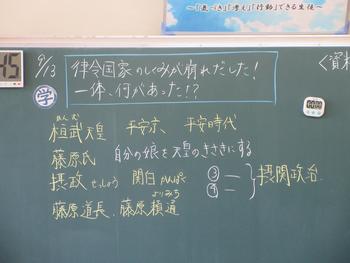 ～「気づき」「考え」「行動」できる生徒～
45
9/13
律令国家のしくみが崩れだした!
一体、何があった!?
学
＜資料
かんむ
桓武天皇 平安京、平安時代
藤原氏 自分の娘を天皇のきさきにする
摂政 せっしょう 関白 かんぱく ③ー ④ー 摂関政治
よりみち
藤原道長、藤原頼通